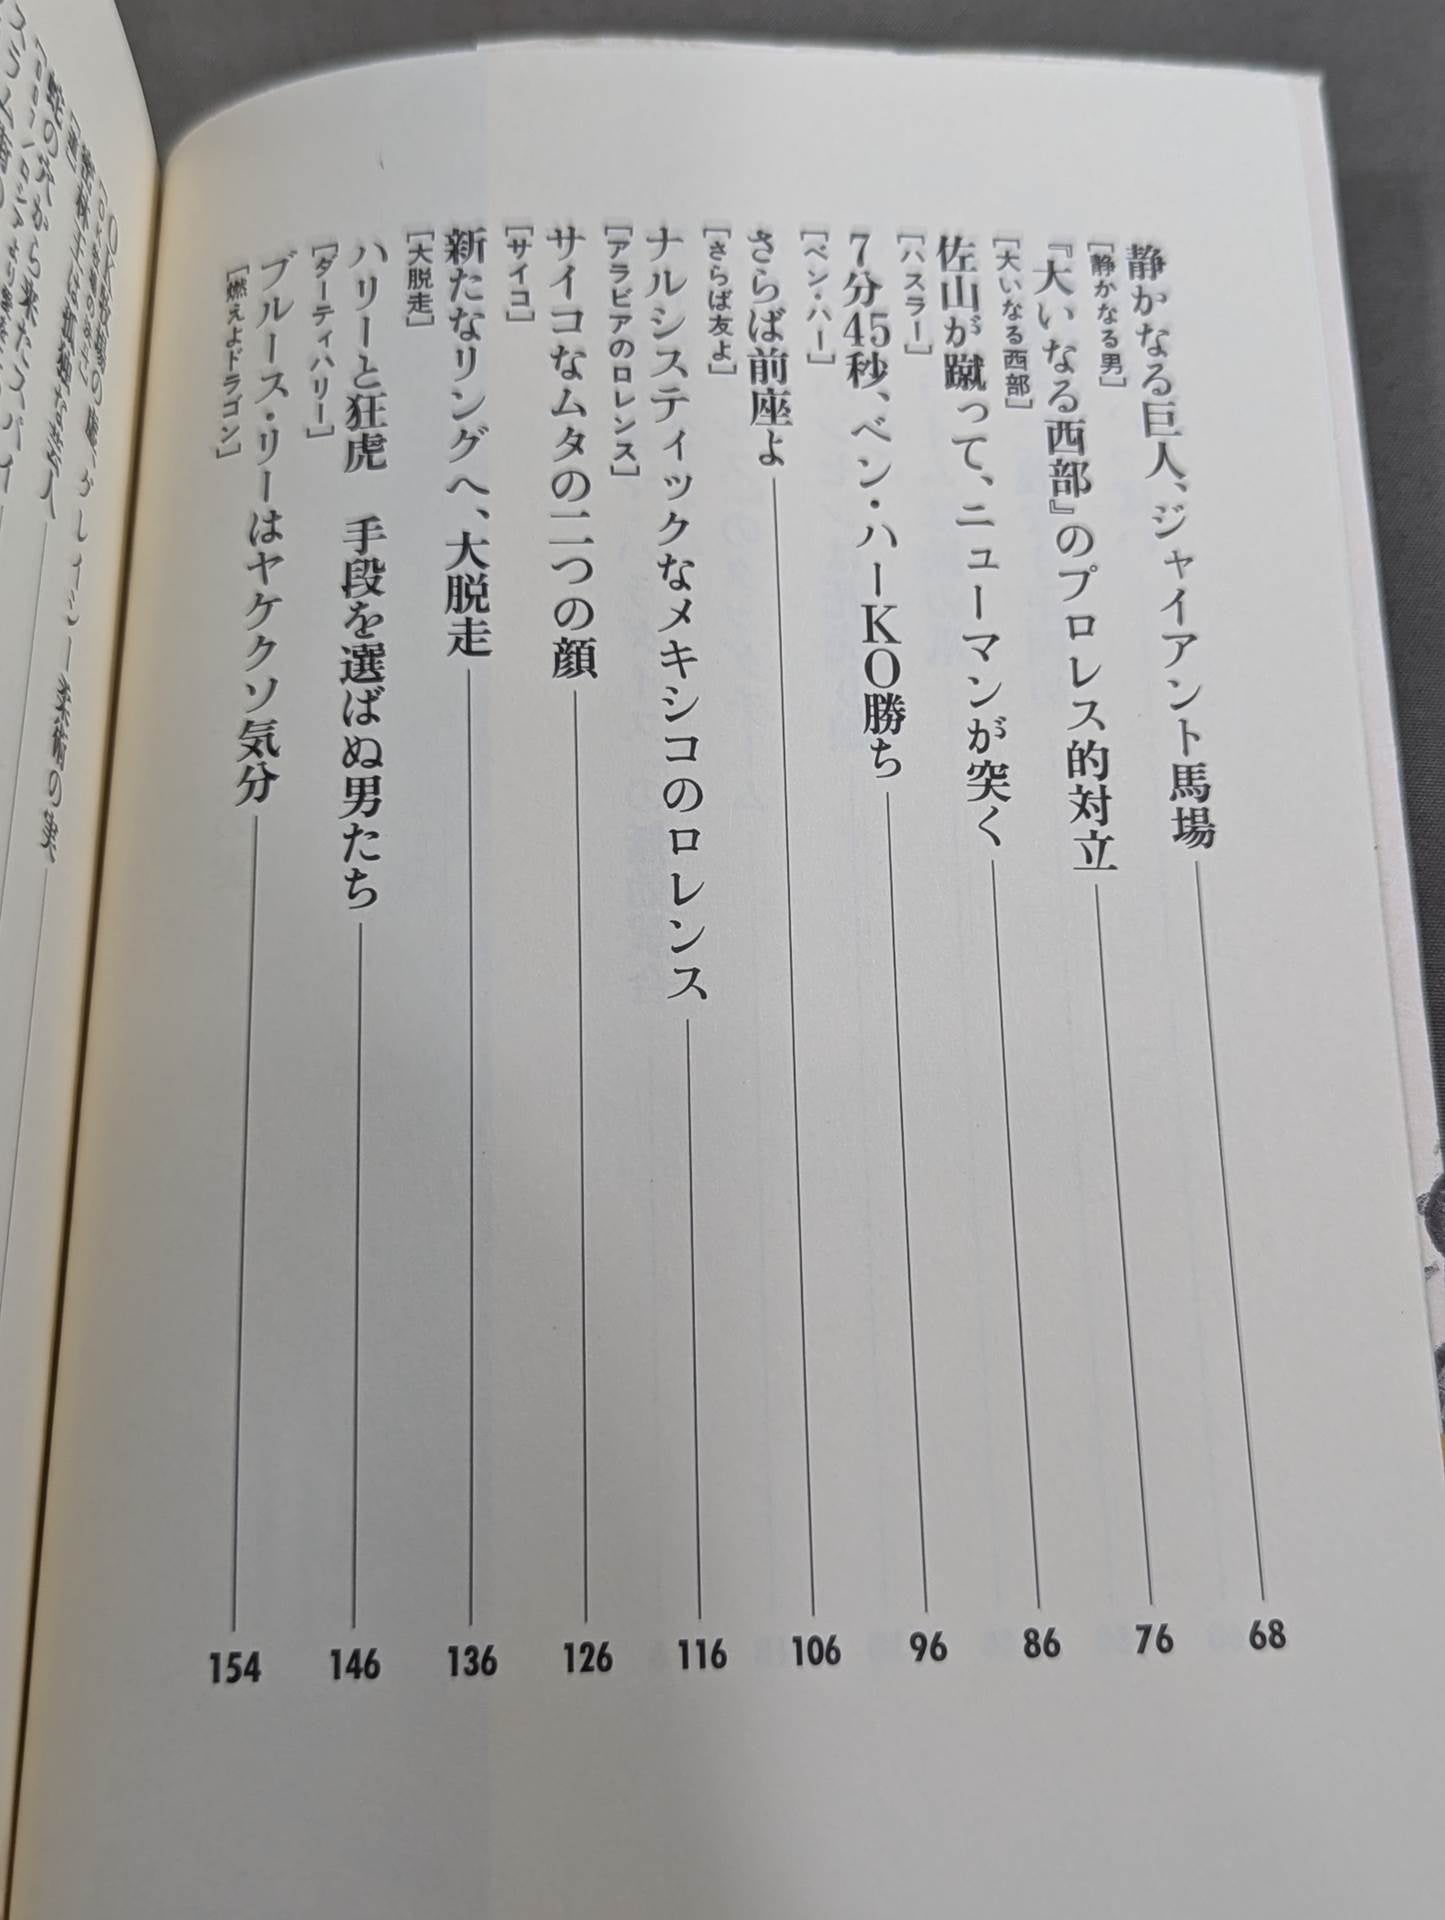 静かなる巨人、ジャイアント馬場 68
［静かなる男］
『大いなる西部』のプロレス的対立 76
［大いなる西部］
佐山が蹴って、ニューマンが突く 86
［ハスラー］
7分45秒、ベン・ハーKO勝ち 96
［ベン・ハー］
さらば前座よ 106
［さらば友よ］
ナルシスティックなメキシコのロレンス 116
［アラビアのロレンス］
サイコなムタの二つの顔 126
［サイコ］
新たなリングへ、大脱走 136
［大脱走］
ハリーと狂虎　手段を選ばぬ男たち 146
［ダーティハリー］
ブルース・リーはヤケクソ気分 154
［燃えよドラゴン］
柔術の実